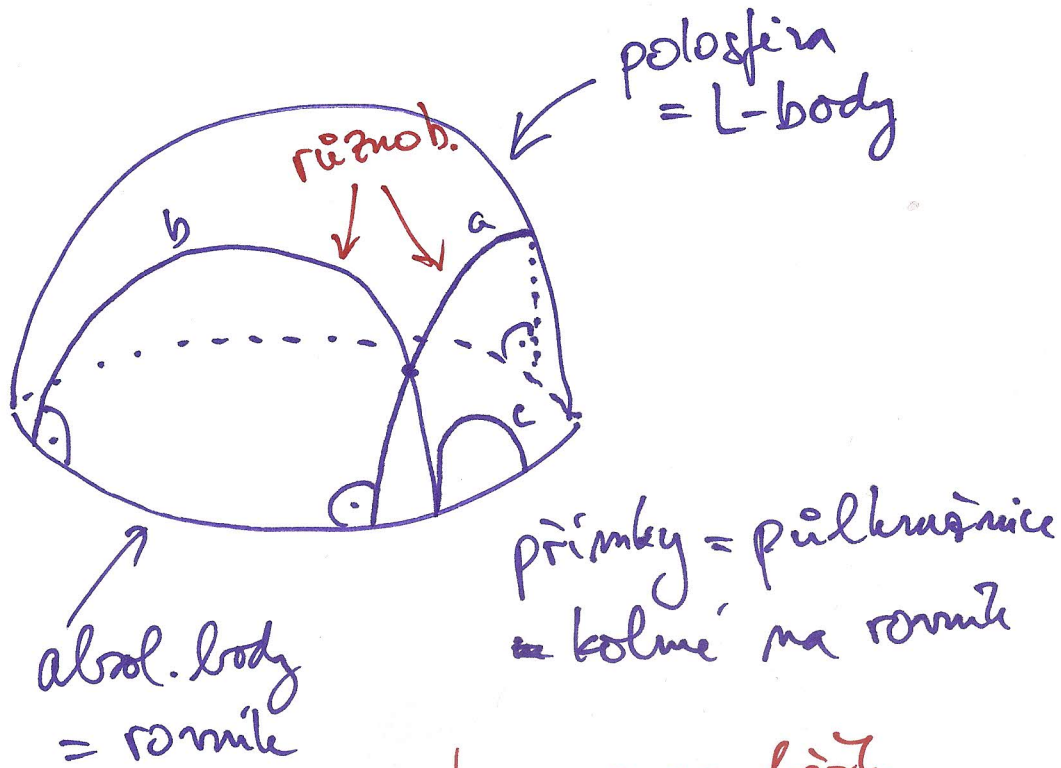 polosféra
= L-body
různob.
b
a
c
přímky = půlkružnice
kolmé na rovník
absol. body
= rovník